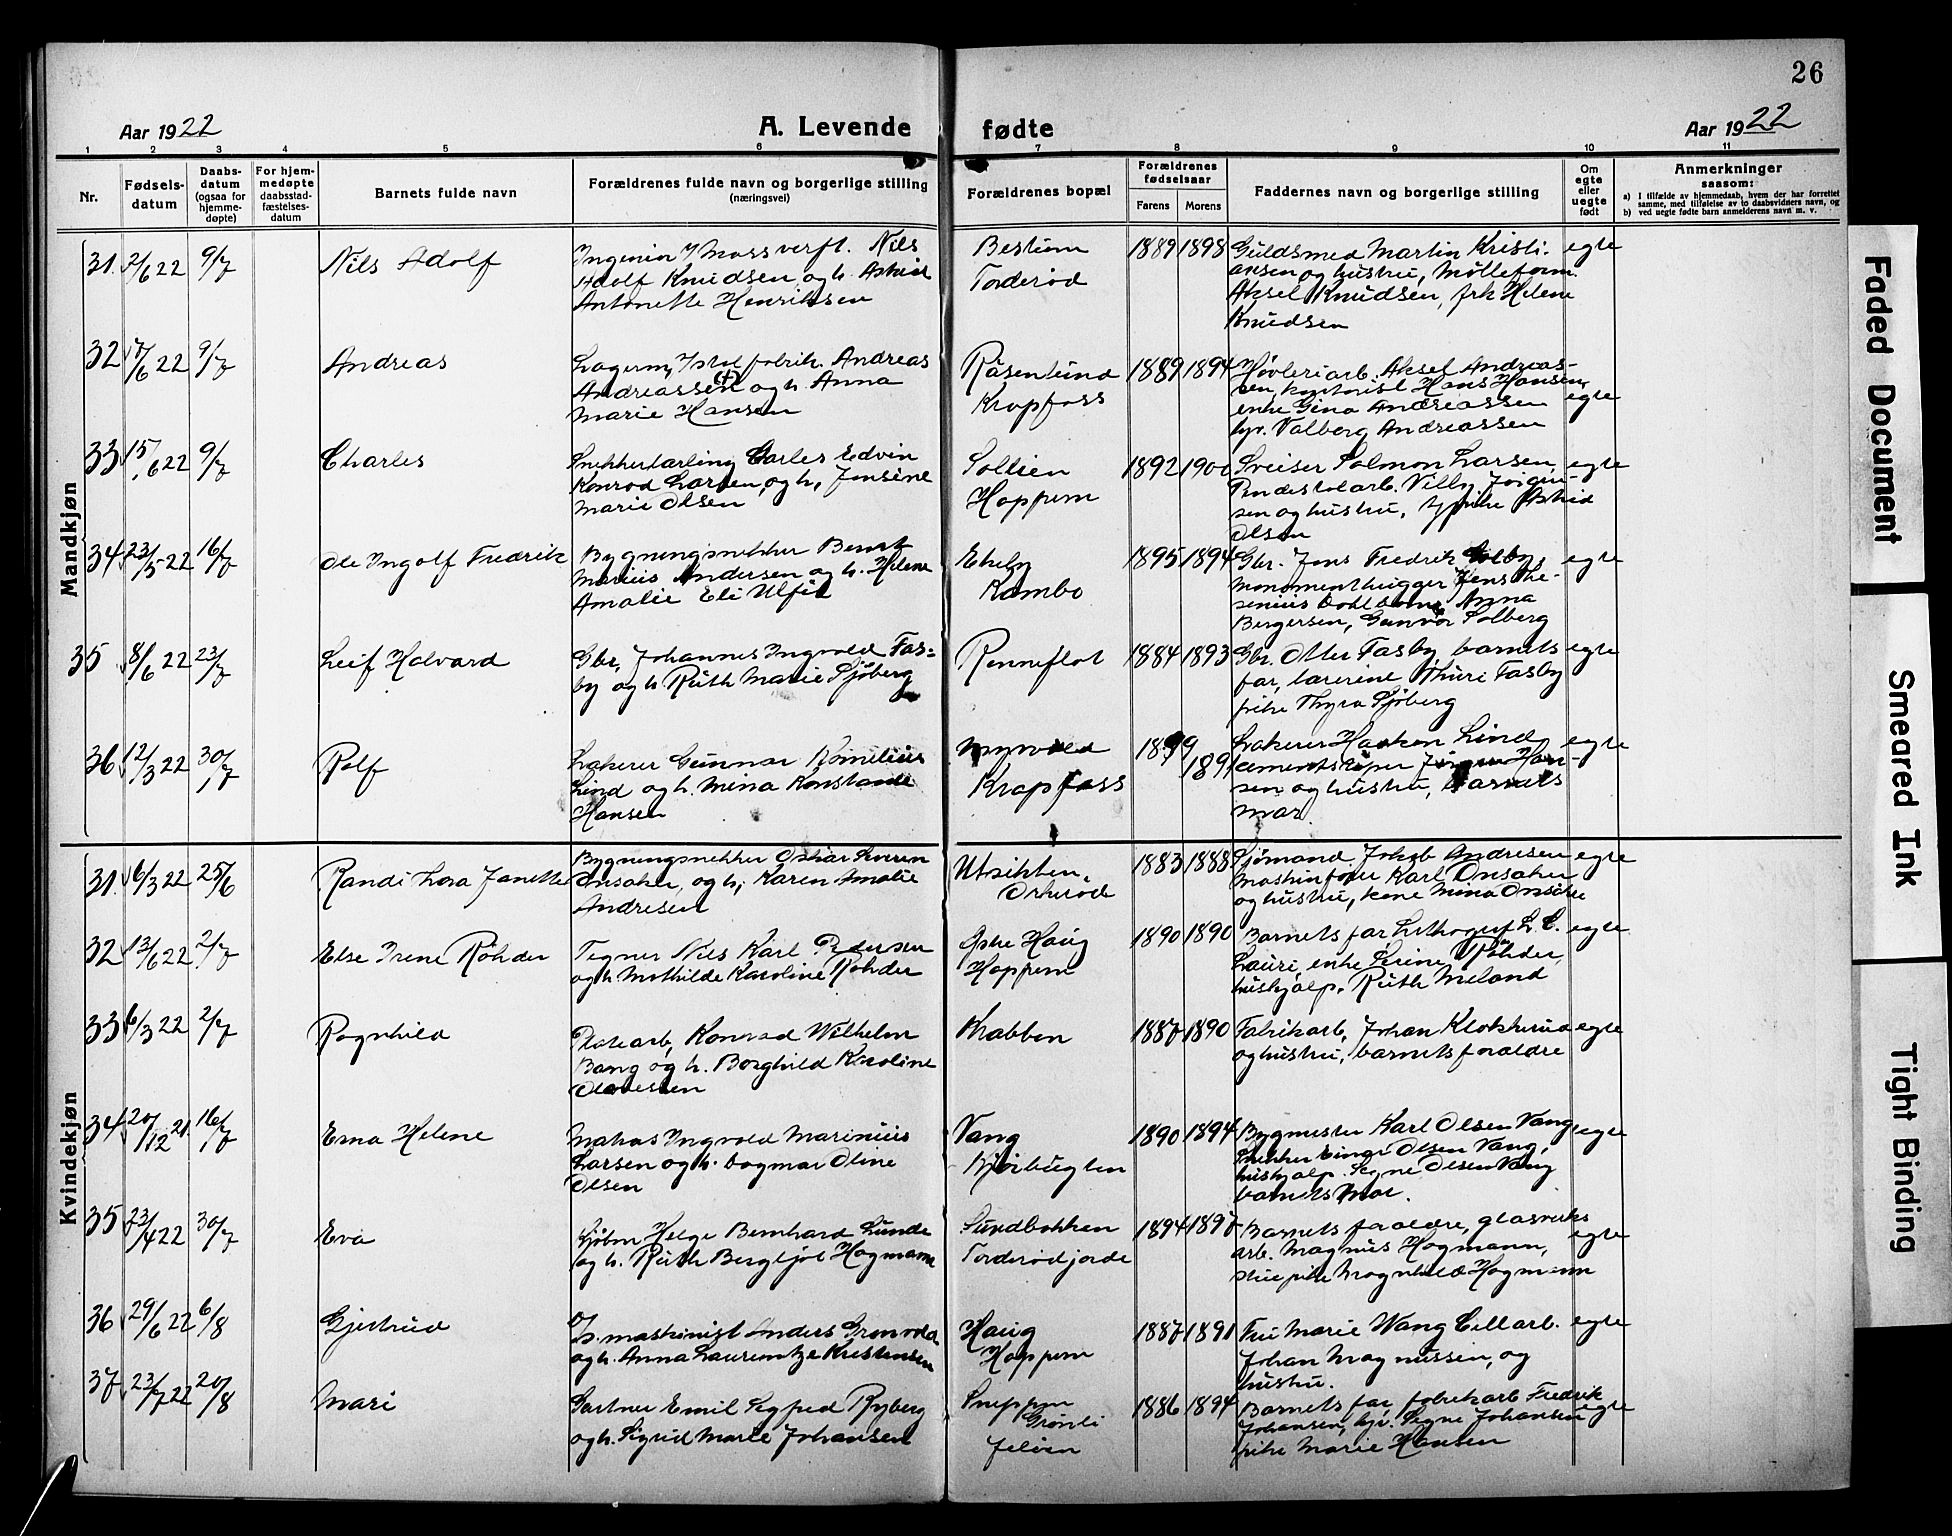 26
Aar 1922
A. Levende fødte
Aar 1922
1 2 3 4 5 6 7 8 9 10 11
Nr.
Fødsels-
datum
Daabs-
datum
(ogsaa for
hjemme-
døpte)
For hjem-
medøpte
daabsstad-
fæstelses-
datum
Barnets fulde navn
Forældrenes fulde navn og borgerlige stilling
(næringsvei)
Forældrenes bopæl
Forældrenes
fødselsaar
Farens Morens
Faddernes navn og borgerlige stilling
Om
egte
eller
uegte
født
Anmerkninger
saasom:
a) I tilfælde av hjemmedaab, hvem der har forrettet
samme, med tilføielse av to daabsvidners navn, og
b) ved uegte fødte barn anmelderens navn m. v.
Mandkjøn
31. 2/6 22 9/7
Nils Adolf
Ingeniør v/ Moss verft. Nils
Adolf Knudsen og h. Astrid
Antonette Henriksen
Bestum
Torderød
1889 1898
Guldsmed Martin Kristi-
ansen og hustru, Mølleform.
Aksel Knudsen, frk Helene
Knudsen
egte
32 7/6 22 9/7
Andreas
Andreas
Andreassen og h. Anna
Marie Hansen
Råsenlund
Krapfoss
1889 1894
Høvleriarb. Aksel Andreas-
sen, Hans Hansen,
enke Gina Andreassen
Valborg Andreassen
egte
33 15/6 22 9/7
Charles
Snekkerlærling Carles Edvin
Konrad Larsen og h. Jensine
Marie Olsen
Sollien
Hoppern
1892
Sveiser Salmon Larsen,
Villy Jørgen-
sen og hustru, Astrid
Olsen
egte
34 23/5 22 16/7
Ole Ingolf Fredrik
Bygningsnekker Bernt
Marius Andersen og h. Helene
Amalie Eli Ulfid
Ekeby
Kambo
1895 1894
Gbr. Jens Fredrik Solby,
monumenthugger Jens The-
Anna
Bergersen, Gunvor Solberg
egte
35 8/6 22 23/7
Leif Halvard
Gbr. Johannes Ingvald Fas-
by og h. Ruth Marie Sjøberg
Renneflot
1884 1893
Gbr. Otter Fasby, barnets
far, lærerine Thuri Fasby
pike Thyra Sjøberg
egte
36 12/3 22 30/7
Rolf
Lakerer Gunnar Kornelius
Lind og h. Mina Konstanse
Hansen
Myrvold
Krapfoss
1899
Lakerer Haakon Lind,
cementstøper Jørgen Han-
sen og hustru, barnets
mor.
egte
Kvindekjøn
31. 16/3 22 25/6
Randi Lova Janette
Bygningsnekker Oskar Severin
Onsaker, og h. Karen Amalie
Andresen
Utsikten,
Orkerød
1883 1888
Sjømand Jakob Andresen
Maskinfører Karl Onsaker
og hustru, kone Mina Onsaker
egte
32 13/6 22 2/7
Else Irene Röhder
Tegner Nils Karl Pedersen
og h. Mathilde Karoline Röhder
Østre Haug
Hoppern
1890 1890
Barnets far Lithograf L. C.
Lauri, enke Serine Röhder,
hushjælp. Ruth Meland
egte
33 6/3 22 2/7
Ragnhild
Platearb. Konrad Vilhelm
Bang og h. Borghild Karoline
Olavesen
Krabben
1887 1890
Fabrikarb. Johan Klokkerud
og hustru, barnets forældre
egte
34 20/12 21. 16/7
Erna Helene
Matros Ingvald Marinius
Larsen og h. Dagmar Oline
Olsen
Vang
Bjørbugten
1890 1894
Bygmester Karl Olsen Vang,
Snekker Einar Olsen Vang,
hushjælp. Signe Olsen Vang
barnets Mor.
egte
35 23/4 22 30/7
Eva
Sjøm Helge Bernhard Lunde
og h. Ruth Bergljot Hagmann
Sundbakken
Torderødjorde
1894 1897
Barnets forældre, glasverks
arb. Magnus Hagmann,
stuepike Magnhild Hagmann
egte
36 29/6 22 6/8
Gjertrud
maskinist Anders Grønvold
og h. Anna Laurentze Kristensen
Haug
Hoppern
1887 1891
Fru Marie Wang Cellarb.
Johan Magnussen, og
hustru.
egte
37 23/7 22 20/8
Mari
Gartner Emil Sigfred Ryberg
og h. Sigrid Marie Johansen
Grønli
Jeløen
1886 1894
Barnets far, fabrikarb. Fredrik
Johansen, Signe Johansen
pike Marie Hansen
egte
Faded Document
Smeared Ink
Tight Binding